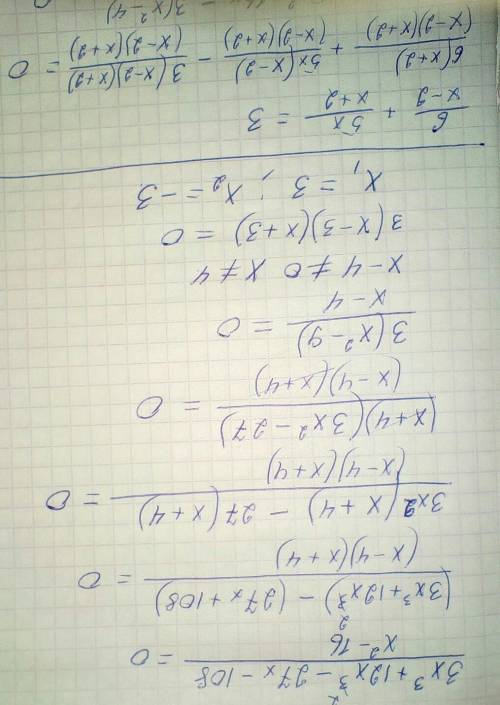 (3x³+12x²-27x-108)/(x²-16) = 0
((3x³+12x²)-(27x+108))/((x-4)(x+4)) = 0
(3x²(x+4)-27(x+4))/((x-4)(x+4)) = 0
((x+4)(3x²-27))/((x-4)(x+4)) = 0
(3(x²-9))/(x-4) = 0
x-4≠0 x≠4
3(x-3)(x+3) = 0
x₁=3; x₂=-3
6/(x-2) + 5x/(x+2) = 3
6(x+2)/((x-2)(x+2)) + 5x(x-2)/((x-2)(x+2)) - 3(x-2)(x+2)/((x-2)(x+2)) = 0
3(x²-4)